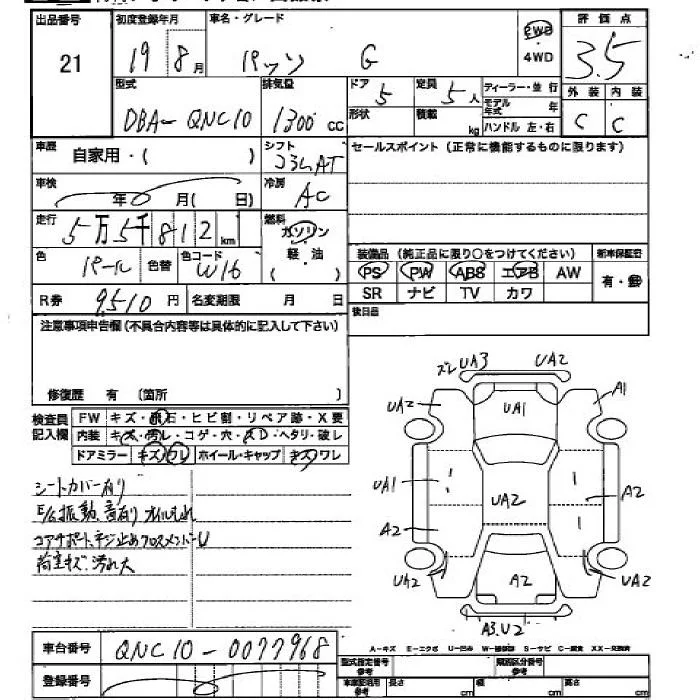 出品番号 初度登録年月 車名・グレード 評価点
21 19 8月 パッソ G FWD 4WD 3.5
型式 排気量 ドア 定員 ディーラー・並行 外装 内装
DBA-QNC10 1300cc 5 5人 モデル年式 年 C C
形状 積載 kg ハンドル 左・右
車歴 自家用・( ) シフト コラムAT セールスポイント(正常に機能するものに限ります)
車検 年 月( 日) 冷房 AC
走行 5万5千812km 燃料 ガソリン 軽・油 ( )
色 パール 色替 色コード W16
装備品(純正品に限り○をつけてください) 新車保証書
PS PW ABS エアB AW 有・無
SR ナビ TV カワ
R券 9510円 名変期限 月 日 後日品
注意事項申告欄(不具合内容等は具体的に記入して下さい)
修復歴 有 (箇所 )
検査員記入欄 FW キズ・飛石・ヒビ割・リペア跡・X要
内装 キズ・汚レ・コゲ・穴・スD・ヘタリ・破レ
ドアミラー キズ ワレ ホイール・キャップ キズ ワレ
シートカバー有り
E/G振動、音有り オイルもれ
コアサポートネジ止めクロスメンバーU
荷室キズ、汚れ大
ズレ UA3 UA2
UA2 UA1 A1
UA1 UA2 A2
A2
UA2 A2 UA2
A3.U2
A-キズ E-エクボ U-凹み W-補修跡 S-サビ C-腐食 XX-交換済
車台番号 QNC10-0077968
登録番号
型式指定番号 参考 類別区分番号 参考
車庫証明用 参考 長さ cm 幅 cm 高さ cm